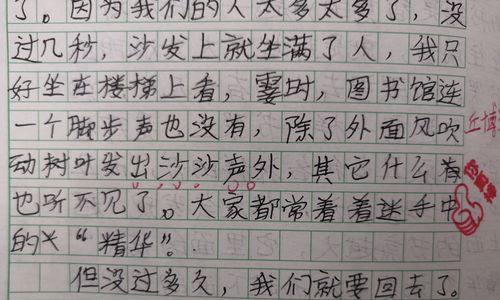 了。因为我们的人太多太多了，没
过几秒，沙发上就坐满了人，我只
好坐在楼梯上看，霎时，图书馆连
一个脚步声也没有，除了外面风吹
动树叶发出沙沙声外，其它什么声
也听不见了。大家都常着着迷手中
的关“精华”。
但没过多久，我们就要回去了。
丘博